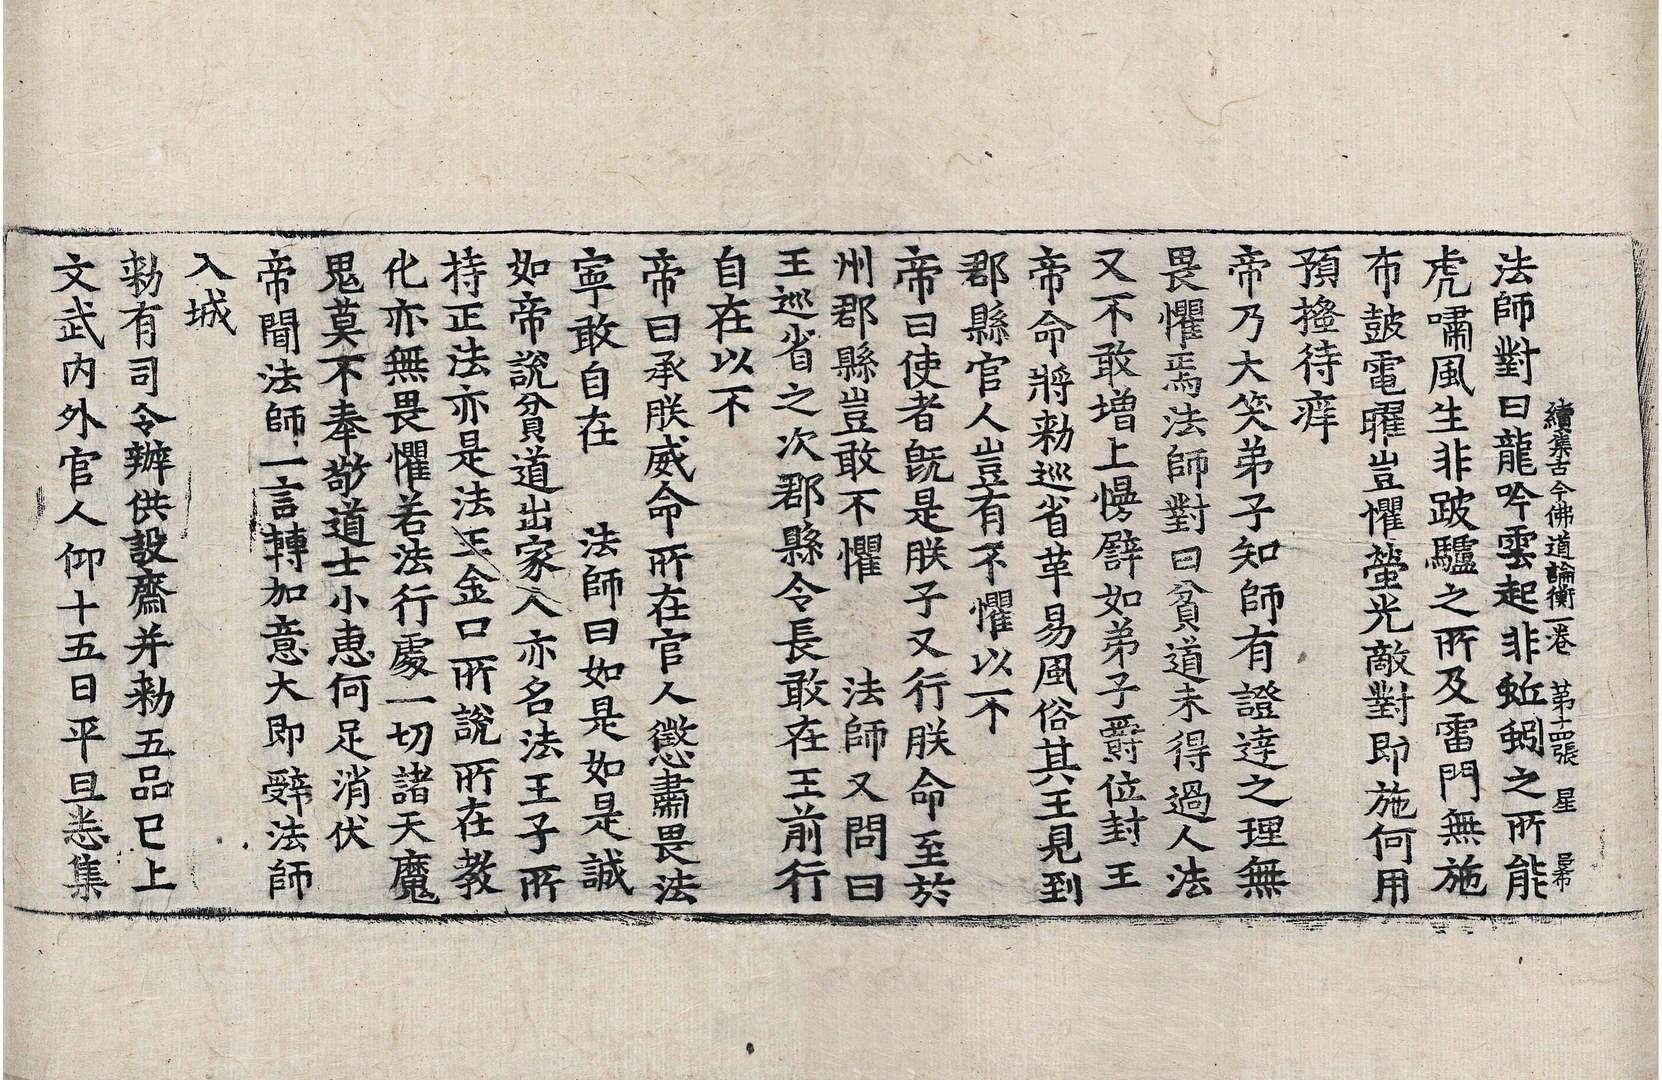 續集古今佛道論衡一卷 第十四張 星
法師對曰龍吟雲起非蚯蚓之所能
虎嘯風生非跛驢之所及雷門無施
布鼓電曜豈懼螢光敵對即施何用
預搔待痒
帝乃大笑弟子知師有證達之理無
畏懼焉法師對曰貧道未得過人法
又不敢增上慢譬如弟子爵位封王
帝命將勑巡省革易風俗其王見到
郡縣官人豈有不懼以不
帝曰使者既是朕子又行朕命至於
州郡縣豈敢不懼 法師又問曰
王巡省之次郡縣令長敢在王前行
自在以不
帝曰承朕威命所在官人懲肅畏法
寧敢自在 法師曰如是如是誠
如帝說貧道出家人亦名法王子所
持正法亦是法王金口所說所在教
化亦無畏懼若法行處一切諸天魔
鬼莫不奉敬道士小惠何足消伏
帝聞法師一言轉加意大即辤法師
入城
勑有司令辦供設齋并勑五品已上
文武內外官人仰十五日平旦悉集